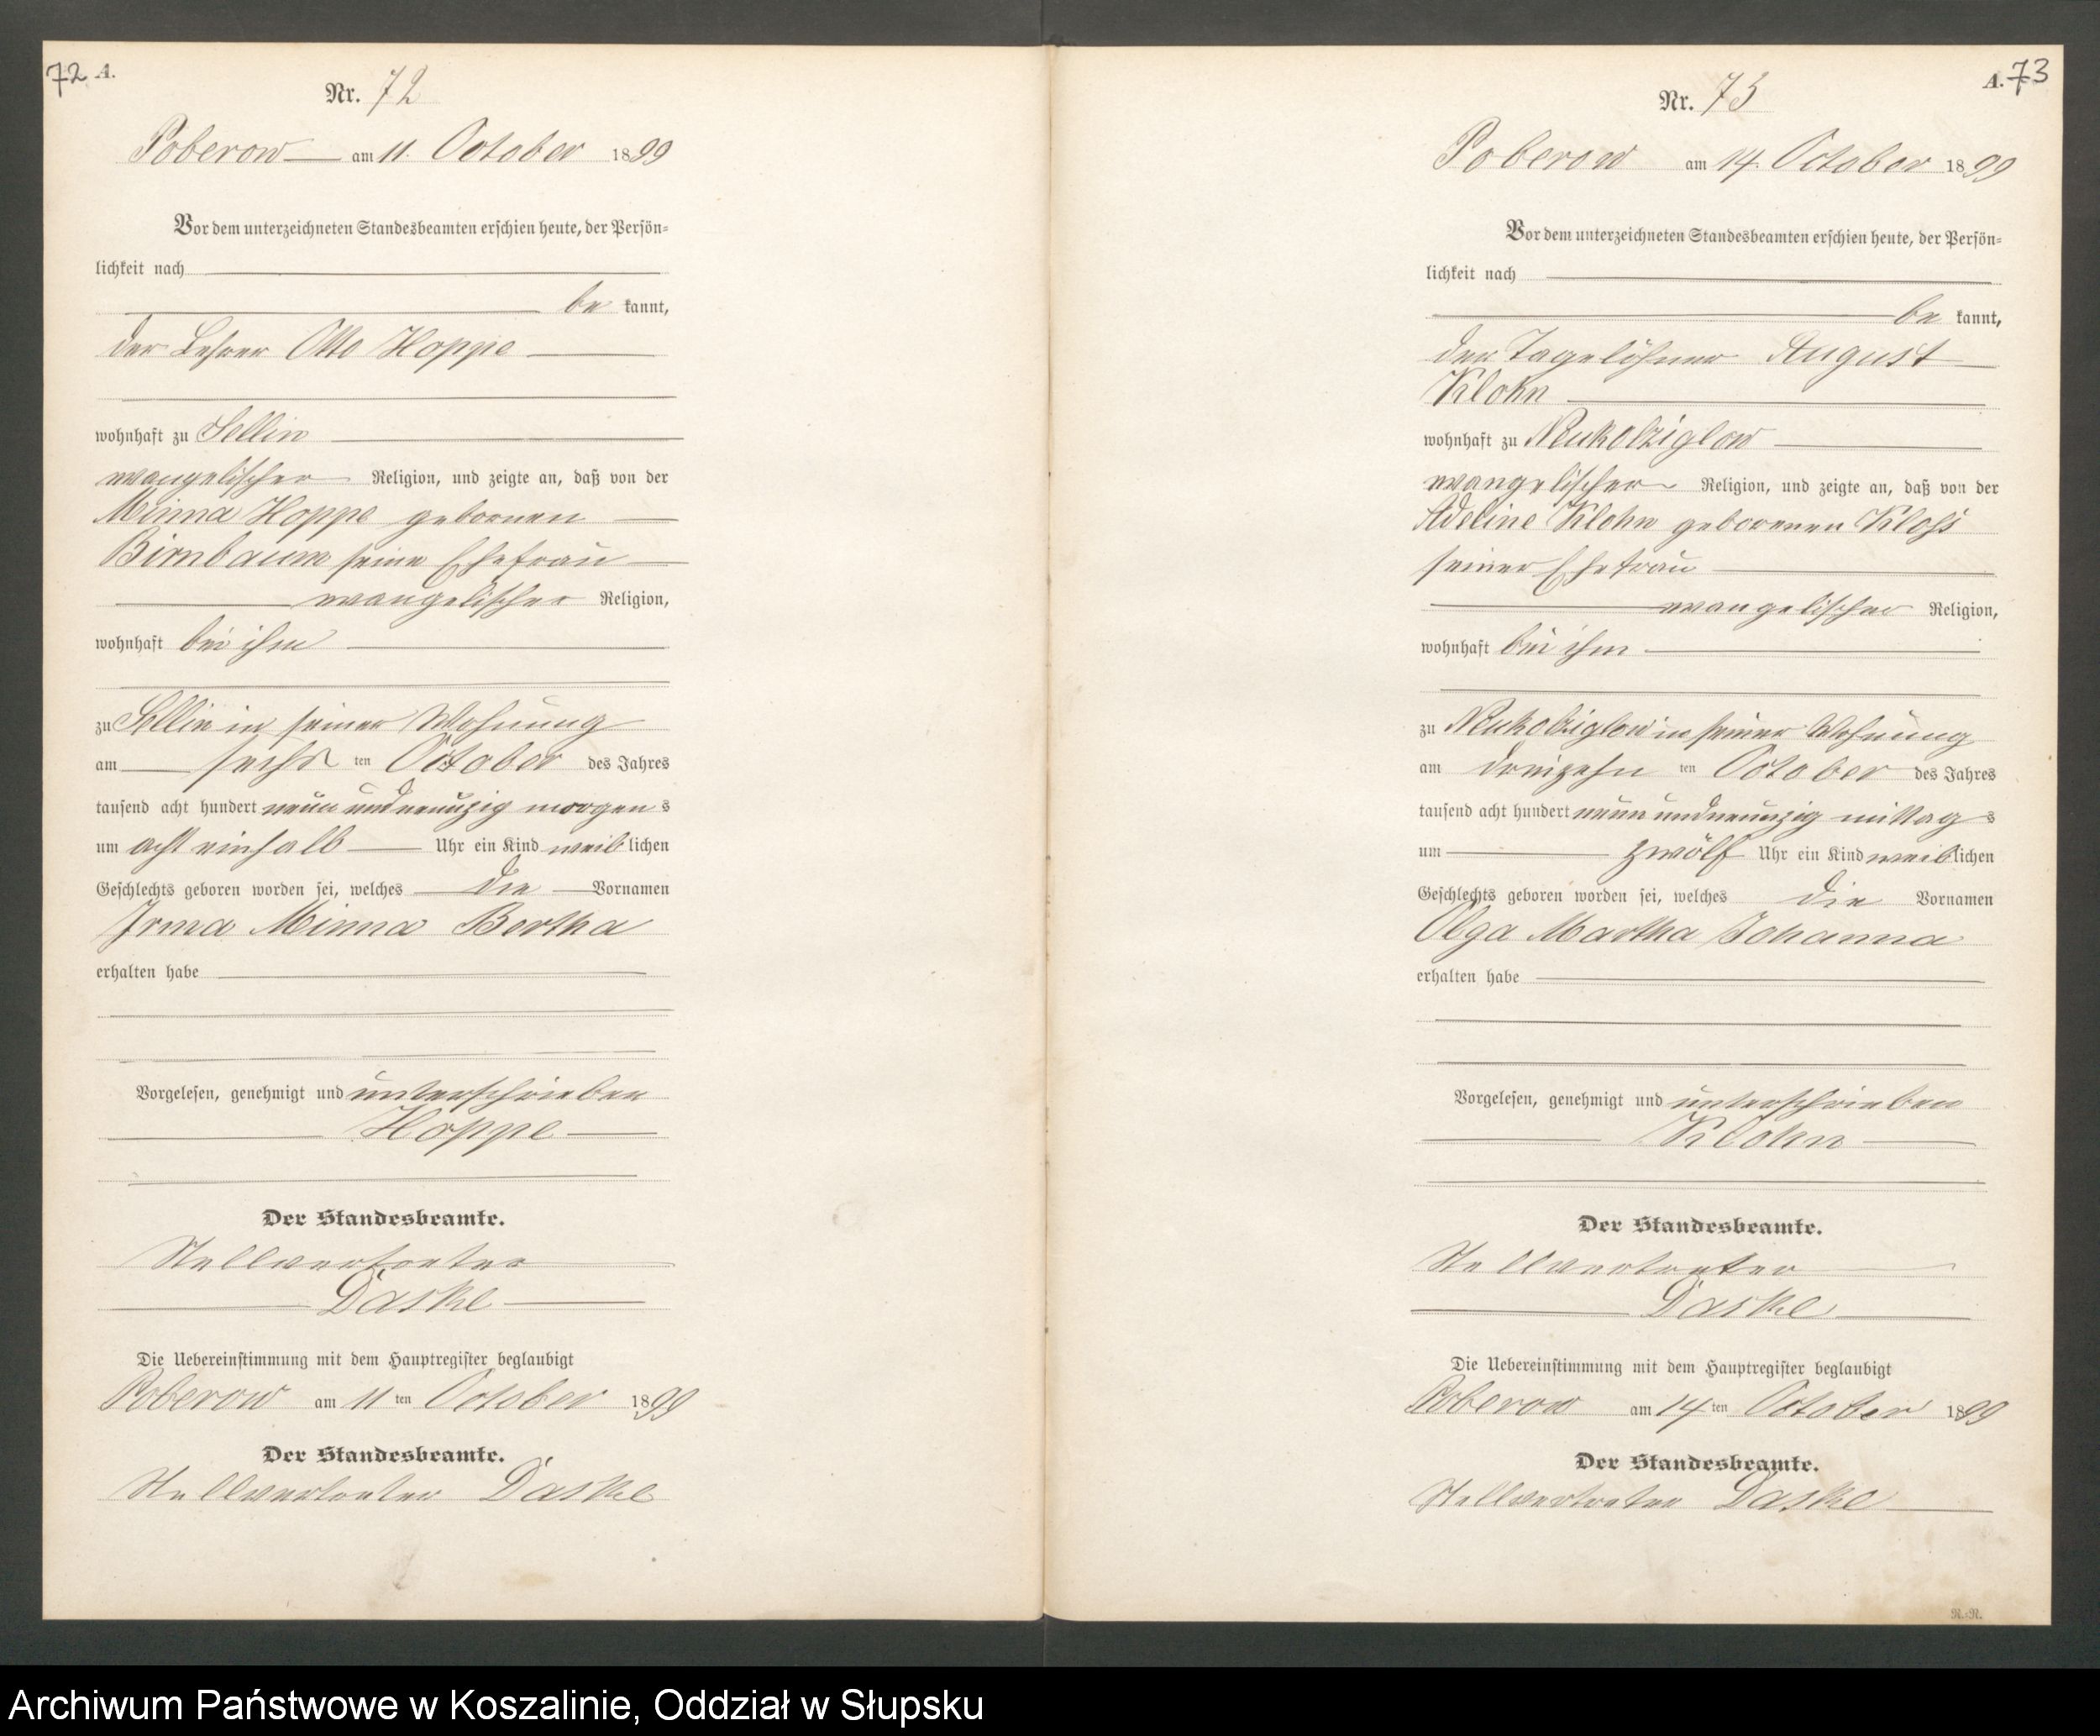 72 A.
Nr. 72
Poberow am 11. October 1899
Vor dem unterzeichneten Standesbeamten erschien heute, der Persön-
lichkeit nach
be kannt,
der Lehrer Otto Hoppe
wohnhaft zu Sellin
evangelischer Religion, und zeigte an, daß von der
Minna Hoppe gebornen
Birnbaum seine Ehefrau
evangelischer Religion,
wohnhaft bei ihm
zu Sellin in seiner Wohnung
am sechs ten October des Jahres
tausend acht hundert neun und neunzig morgen s
um acht einhalb Uhr ein Kind weib lichen
Geschlechts geboren worden sei, welches die Vornamen
Irma Minna Bertha
erhalten habe
Vorgelesen, genehmigt und unterschrieben
Hoppe
Der Standesbeamte.
Stellvertreter
Daske
Die Uebereinstimmung mit dem Hauptregister beglaubigt
Poberow am 11 ten October 1899
Der Standesbeamte.
Stellvertreter Daske
A. 73
Nr. 73
Poberow am 14. October 1899
Vor dem unterzeichneten Standesbeamten erschien heute, der Persön-
lichkeit nach
be kannt,
der Tagelöhner August
Klohn
wohnhaft zu Neukolziglow
evangelischer Religion, und zeigte an, daß von der
Adeline Klohn geborenen Kloß
seiner Ehefrau
evangelischer Religion,
wohnhaft bei ihm
zu Neukolziglow in seiner Wohnung
am dreizehn ten October des Jahres
tausend acht hundert neun und neunzig mittag s
um zwölf Uhr ein Kind weib lichen
Geschlechts geboren worden sei, welches die Vornamen
Olga Martha Johanna
erhalten habe
Vorgelesen, genehmigt und unterschrieben
Klohn
Der Standesbeamte.
Stellvertreter
Daske
Die Uebereinstimmung mit dem Hauptregister beglaubigt
Poberow am 14 ten October 1899
Der Standesbeamte.
Stellvertreter Daske
R.-R.
Archiwum Państwowe w Koszalinie, Oddział w Słupsku